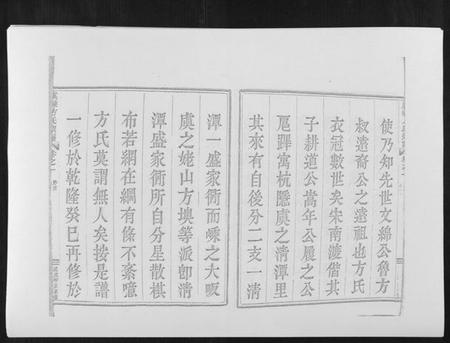 使乃知先世文綿公魯方
叔遣裔公之遠祖也方氏
衣冠數世矣宋南渡偕其
子耕道公嵩年公屢之公
巵蹕寓杭
虞之清潭里
其來有自後分二支一清
潭一盛家衕而嵊之大
虞之姥山方墺等派卽清
潭盛家衕所自分星散棋
布若網在綱有條不紊噫
方氏莫謂無人矣按是譜
一修於乾隆癸巳再修於